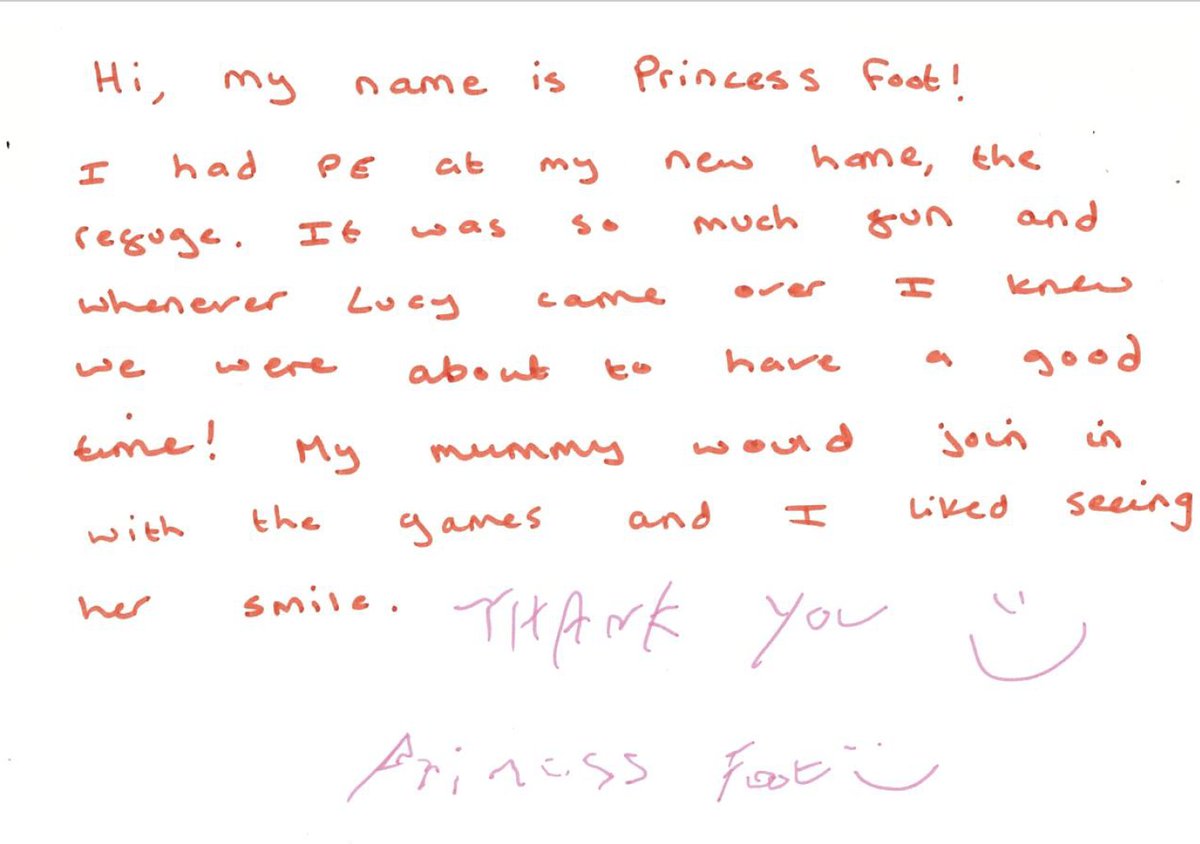 Hi, my name is Princess Foot!
I had PE at my new home, the
refuge. It was so much fun and
whenever Lucy came over I knew
we were about to have a good
time! My mummy would join in
with the games and I liked seeing
her smile. THANK YOU
Princess Foot